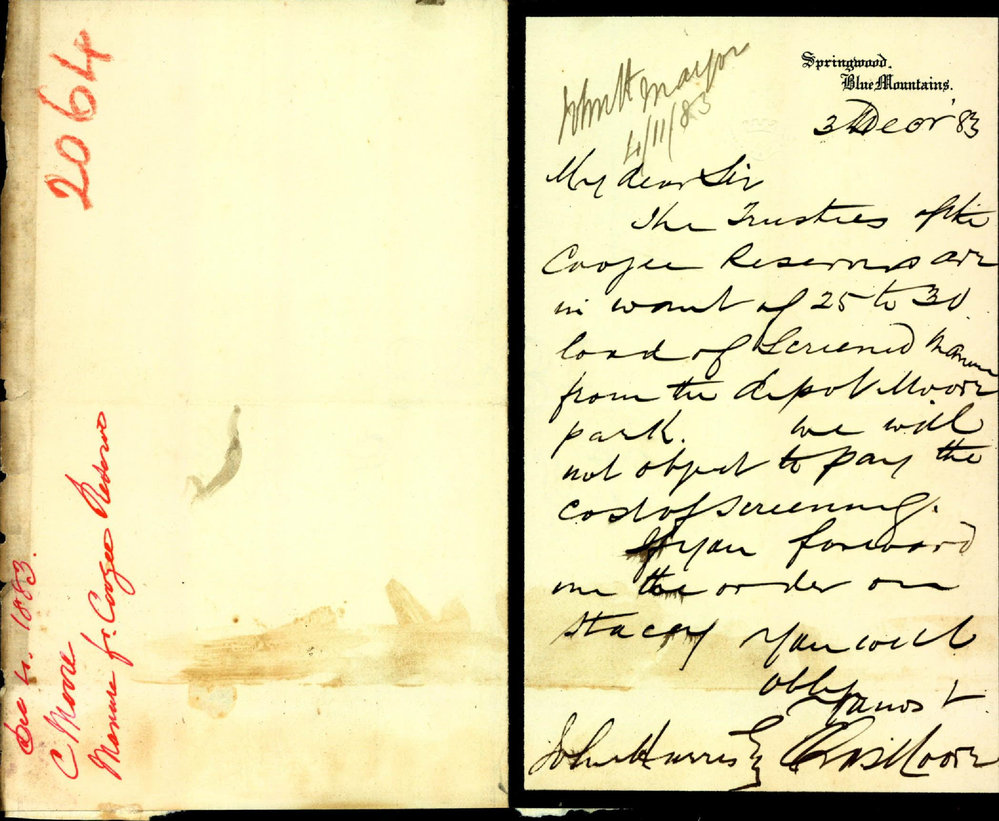 2064
Dec 4. 1883.
C Moore
Manure fr. Coogee Reserve
Springwood.
Blue Mountains.
John H Mayor
4/11/83
3rd Decr '83
My dear Sir
The Trustees of the
Coogee Reserves are
in want of 25 to 30
load of Screened Manure
from the depot Moore
park. We will
not object to pay the
cost of screening.
If you forward
me the order on
Stacey you will
oblige
Yours &
John Harris Esq Chas Moore